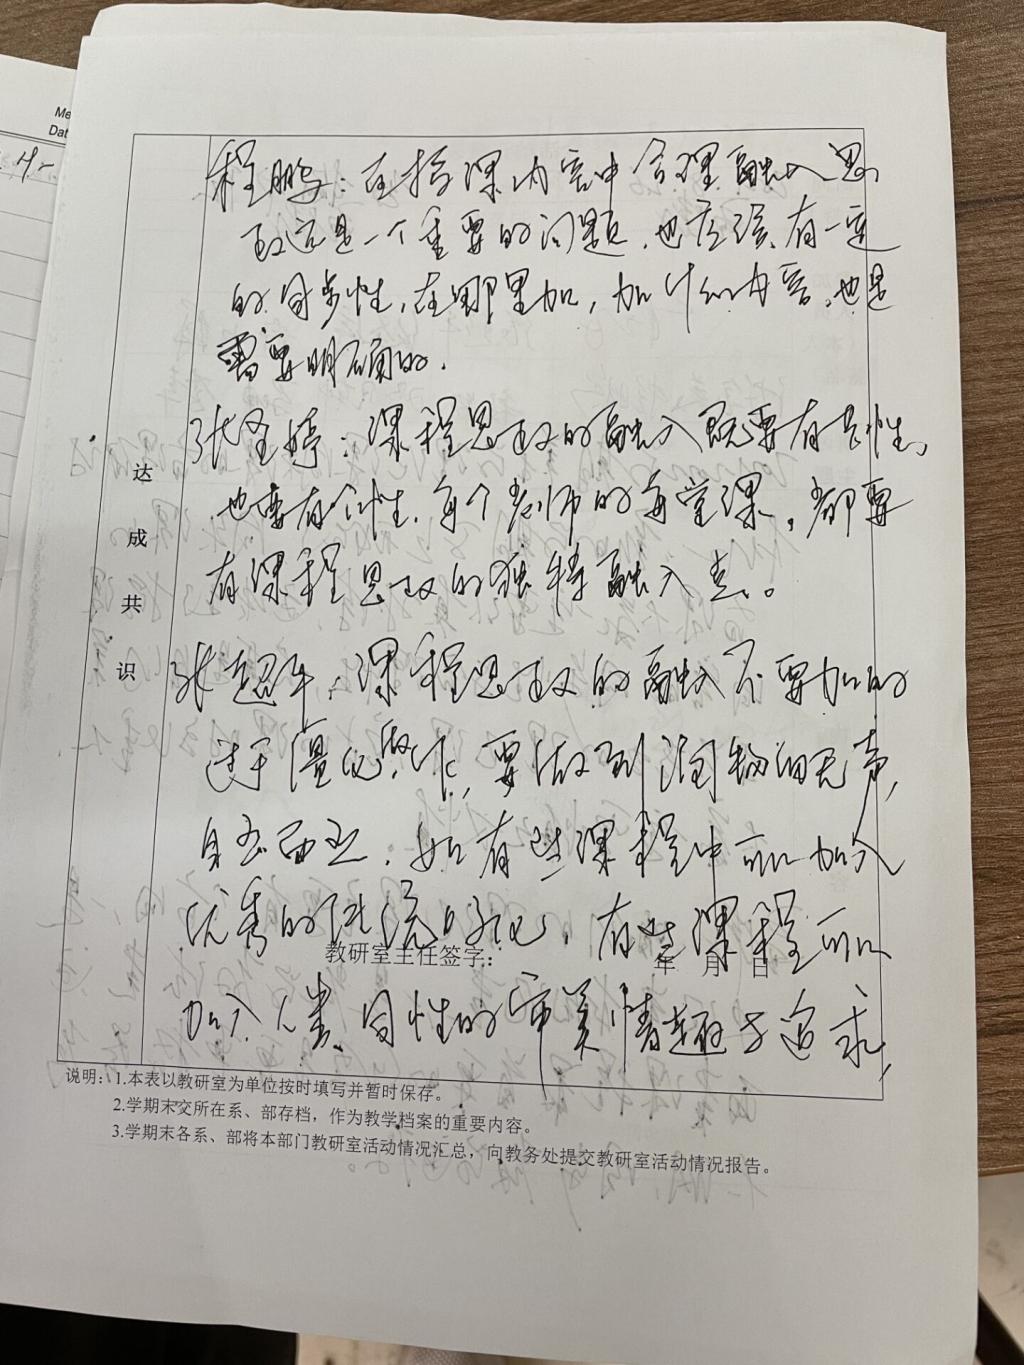 Me
Dat
程鹏：在授课内容中合理融入思
政这是一个重要的问题，也应该有一定
的同步性，在哪里加，加什么内容，也是
需要明确的．
达成共识
张圣婷：课程思政的融入既要有共性，
也要有个性，每个老师的每堂课，都要
有课程思政的独特融入点。
张超年：课程思政的融入不要加的
过于僵化，要做到润物细无声，
自然而然．如有些课程中可以加入
优秀的传统文化，有些课程可以
教研室主任签字： 年 月 日
加入人类同性的审美情趣与追求，
说明：1.本表以教研室为单位按时填写并暂时保存。
2.学期末交所在系、部存档，作为教学档案的重要内容。
3.学期末各系、部将本部门教研室活动情况汇总，向教务处提交教研室活动情况报告。